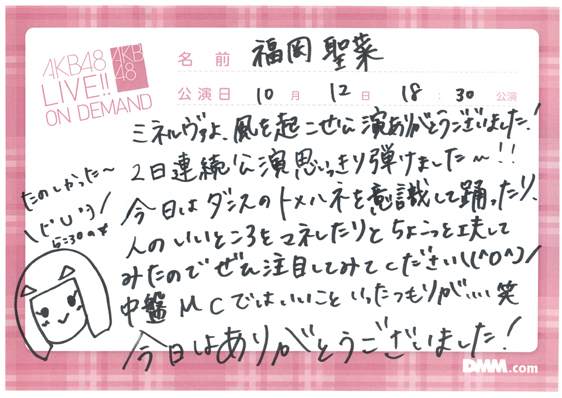 AKB48
LIVE!!
ON DEMAND
AKB
48
名前 福岡 聖菜
公演日 10月 12日 18:30公演
ミネルヴァよ、風を起こせ公演ありがとうございました!
2日連続公演思いっきり弾けました〜!!
今日はダンスのトメハネを意識して踊ったり、
人のいいところをマネしたりとちょこっと工夫して
みたのでぜひ注目してみてください\(^O^)/
中盤MCではいいこといったつもりが…笑
今日はありがとうございました!
たのしかった〜
DMM.com